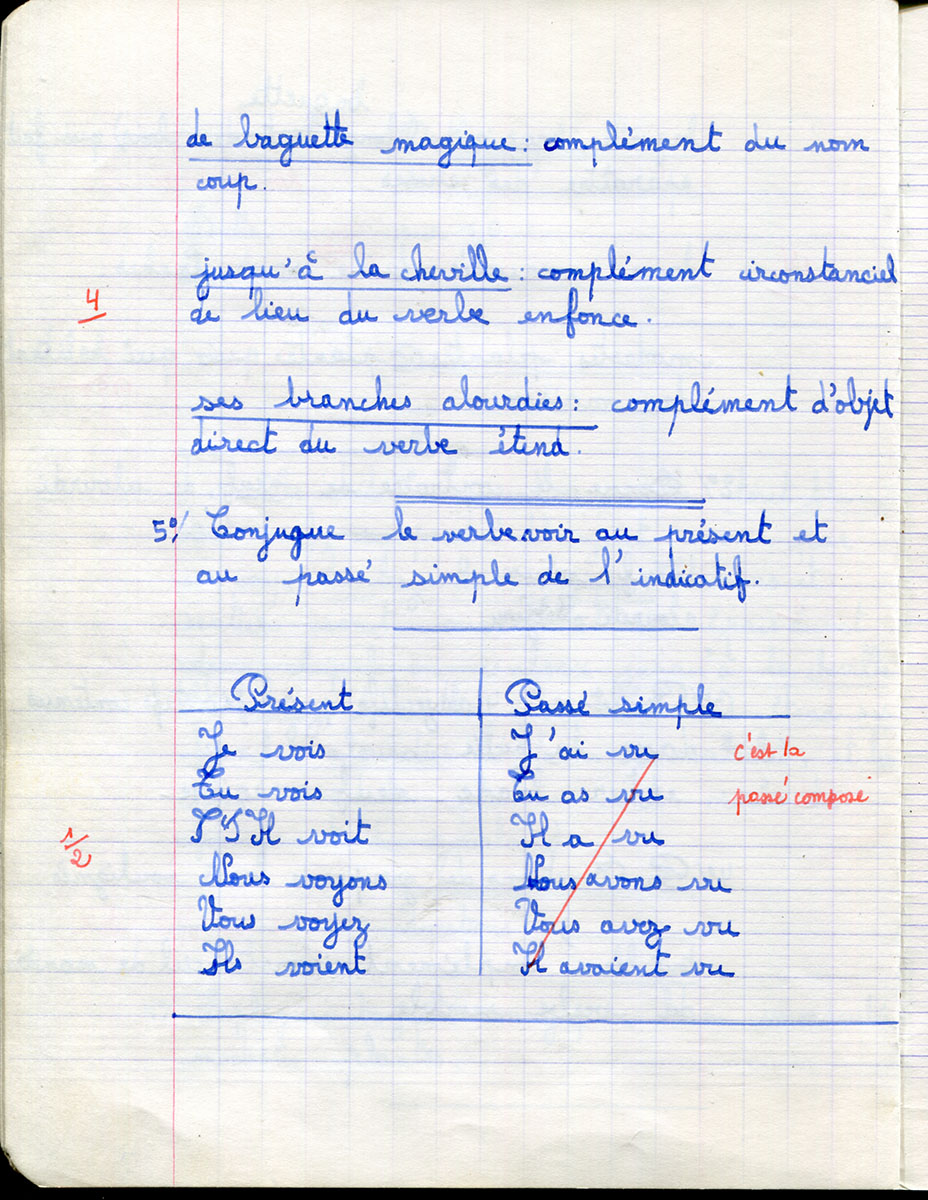 de baguette magique : complément du nom
coup.
jusqu'à la cheville : complément circonstanciel
4
de lieu du verbe enfonce.
ses branches alourdies : complément d'objet
direct du verbe étend.
5°/ Conjugue le verbe voir au présent et
au passé simple de l'indicatif.
Présent Passé simple
Je vois J'ai vu c'est la
Tu vois Tu as vu passé composé
Il voit Il a vu
1/2
Nous voyons Nous avons vu
Vous voyez Vous avez vu
Ils voient Il avaient vu